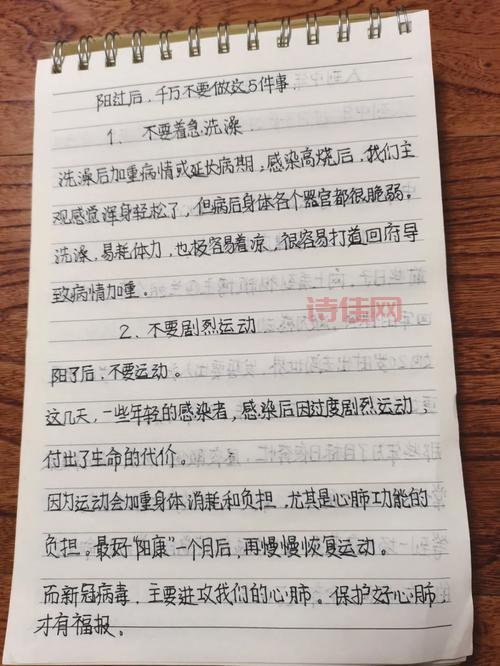 阳过后，千万不要做这5件事.
1、不要着急洗澡
洗澡后加重病情或延长病期；感染高烧后，我们主
观感觉浑身轻松了，但病后身体各个器官都很脆弱。
洗澡，易耗体力，也极容易着凉，很容易打道回府导
致病情加重。
诗佳网
2、不要剧烈运动
阳了后，不要运动。
这几天，一些年轻的感染者，感染后因过度剧烈运动，
付出了生命的代价。
因为运动会加重身体消耗和负担，尤其是心肺功能的
负担。最好“阳康”一个月后，再慢慢恢复运动。
而新冠病毒，主要进攻我们的心肺。保护好心肺，
才有福报。